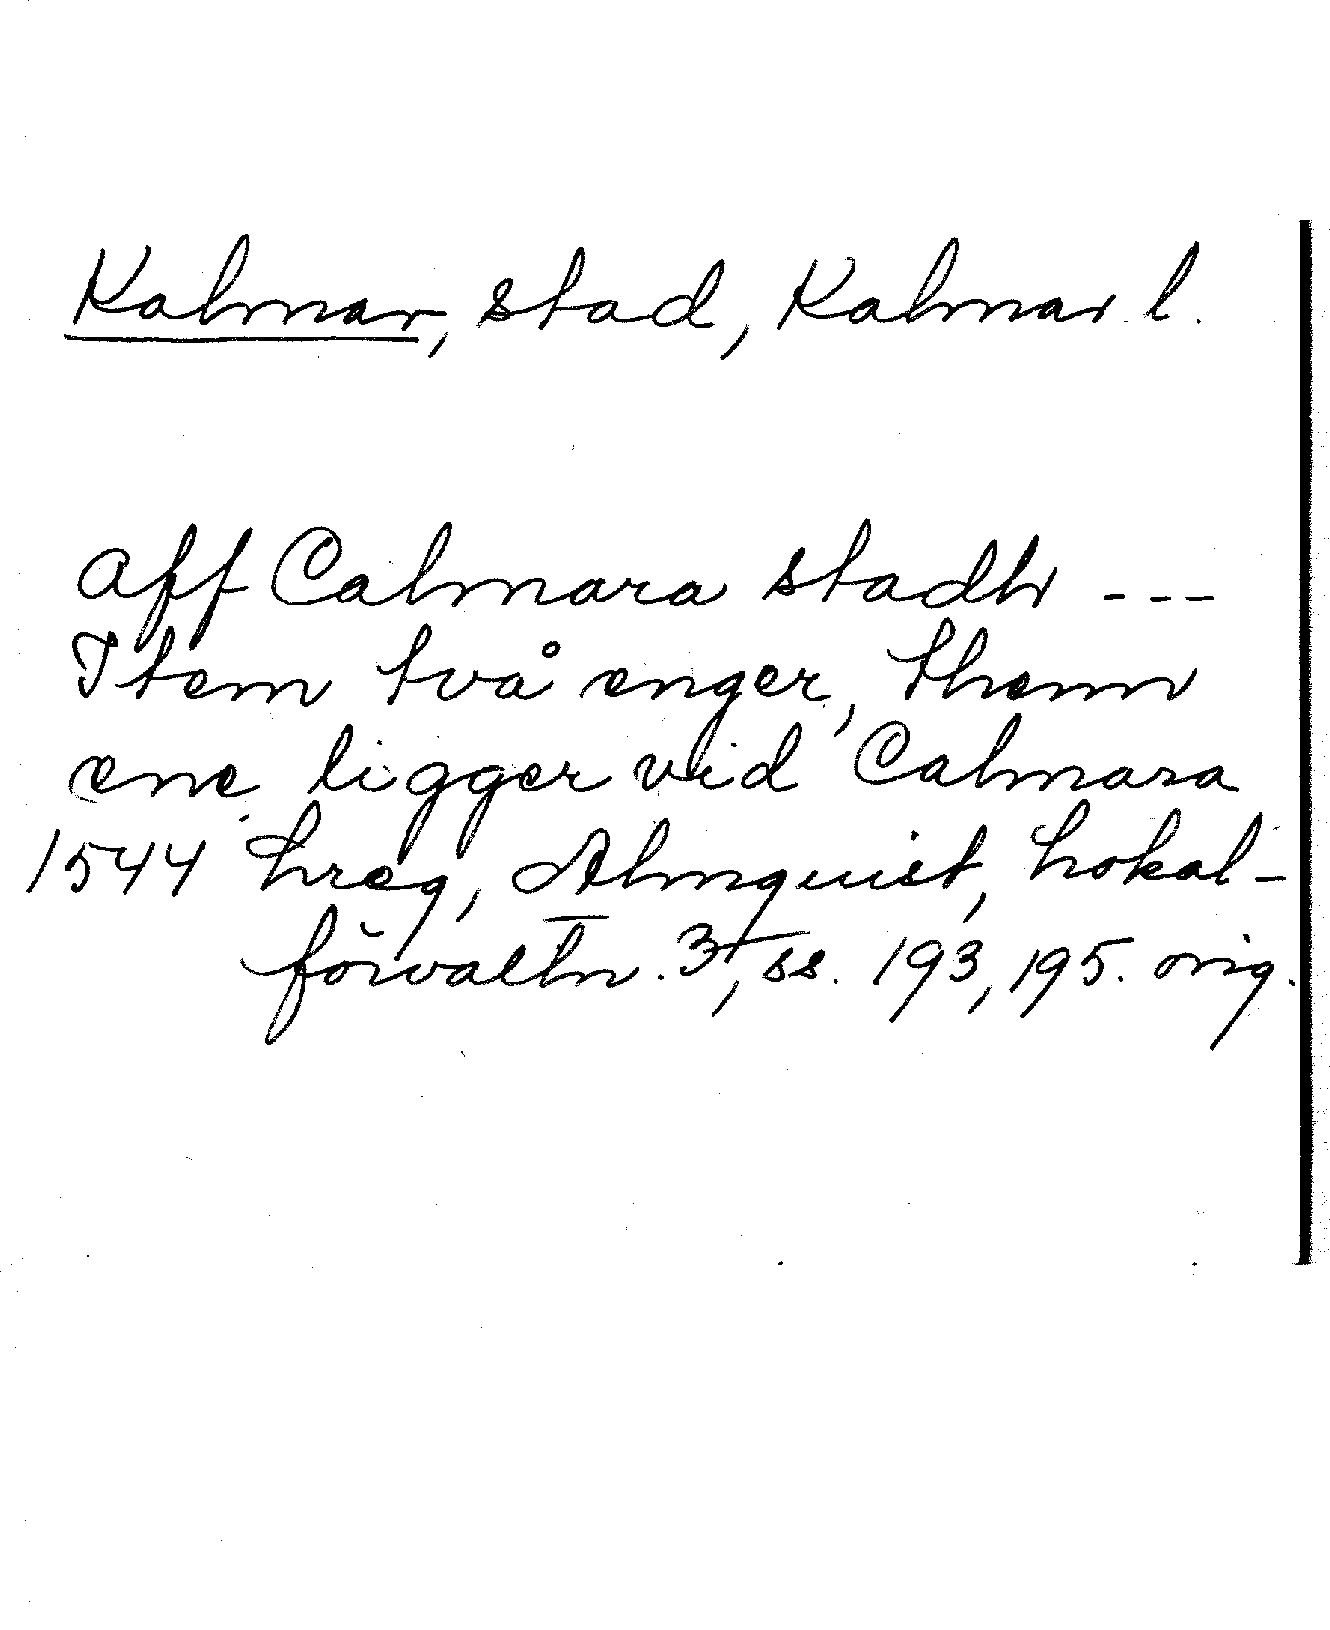 Kalmar, stad, Kalmar l.
aff Calmara stadh ---
Item två enger, thenn
ene ligger vid Calmara
1544 hreg, Almquist, Lokal-
förvaltn. 3, ss. 193, 195. orig.